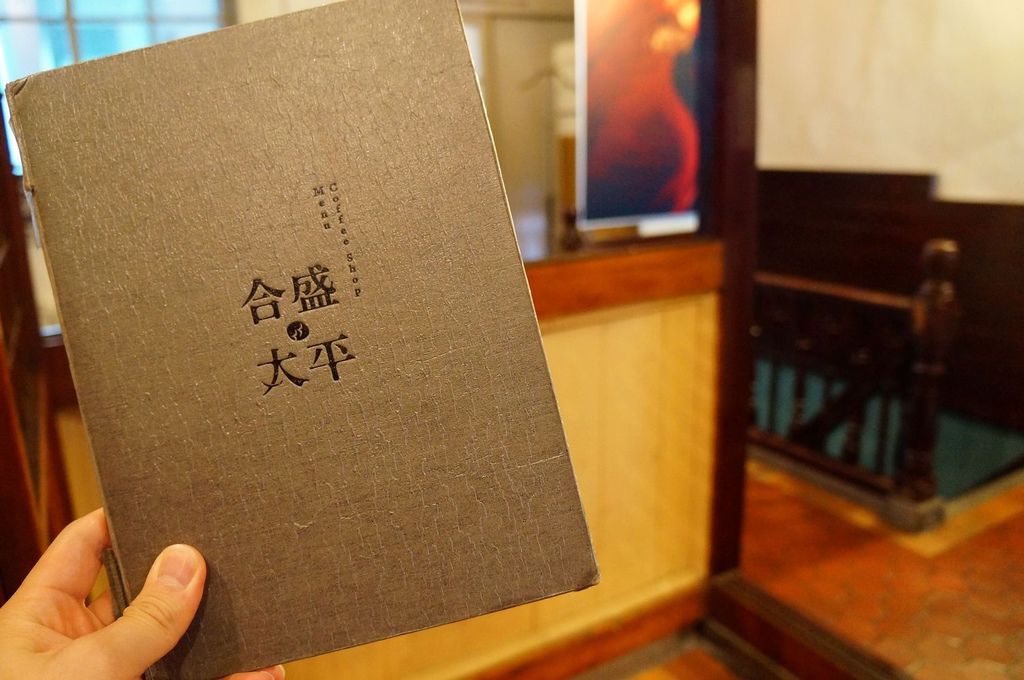 Coffee Shop
Menu
合盛
太平